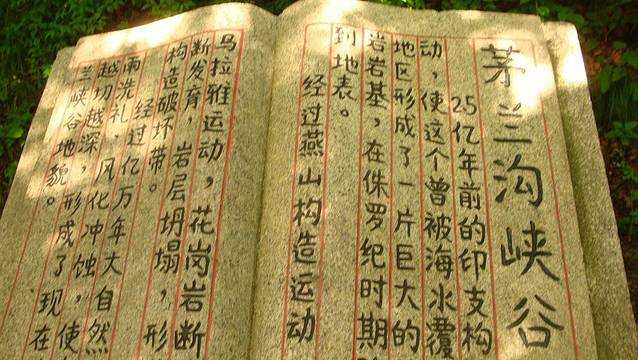 茅兰沟峡谷
25亿年前的印支构
动，使这个曾被海水覆
地区形成了一片巨大的
岩岩基，在侏罗纪时期
到地表。
经过燕山构造运动
马拉雅运动，花岗岩断
断发育，岩层坍塌，形
构造破坏带。
经过亿万年大自然
雨洗礼，风化冲蚀，使
越切越深，形成了现在
兰峡谷地貌。